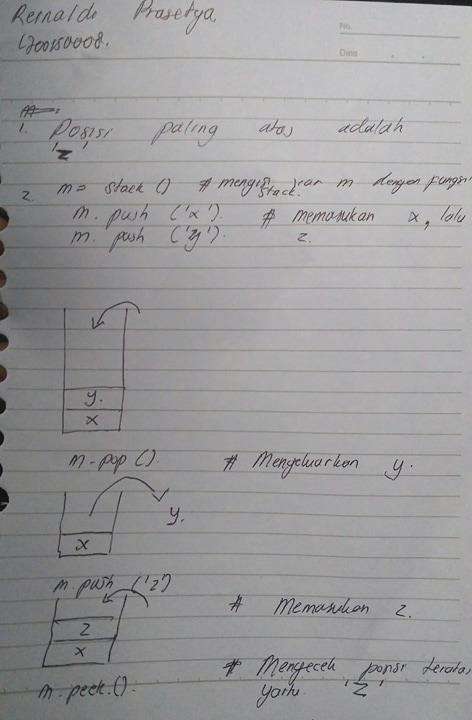 Reinaldi Prasetya
No.
Date
1. Posisi paling atas adalah
'z'
2. m = Stack () # mengisi var m dengan fungsi
Stack.
m. push ('x'). # memasukan x, lalu
m. push ('y'). z.
y.
x
m-pop (). # Mengeluarkan y.
y.
x
m.push ('z')
# Memasukan z.
z
x
# Mengecek posisi teratas
m.peek.(). yaitu 'Z'